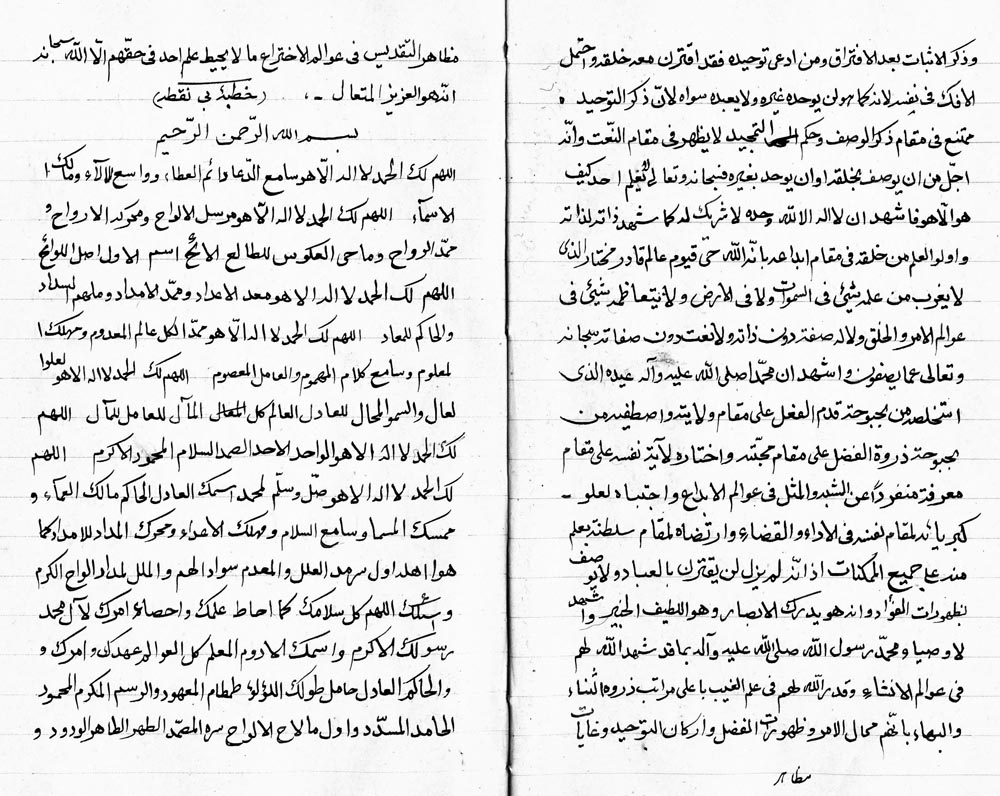 وذكر الاثبات بعد الافتراق ومن ادعى توحيده فقد اقترن معه خلقه واحتمل
الافك فى نفسه لانه كما هو لن يوحده غيره ولا يعبده سواه لان ذكر التوحيد
ممتنع فى مقام ذكر الوصف وحكم التجيد لا يظهر فى مقام النعت وانّه
اجلّ من ان يوصف بخلقه او ان يوحد بغيره فسبحانه وتعالى لا يعلم احد كيف
هو الّا هو فاشهد ان لا اله الا الله وحده لا شريك له كما شهد ذاته لذاته
واولو العلم من خلقه فى مقام ابداعه بانّه الله حىّ قيوم عالم قادر مختار الذى
لا يغرب من علمه شئ فى السموات ولا فى الارض ولا يتعاظمه شئ فى
عوالم الامر والخلق ولا له صفة دون ذاته ولا نعت دون صفاته سبحانه
وتعالى عما يصفون واشهد ان محمّدا صلى الله عليه وآله عبده الذى
استخلصه من بحبوحة قدم الفعل على مقام ولايته واصطفيه من
بحبوحة ذروة الفضل على مقام محبّته واختاره لآية نفسه على مقام
معرفة منفرداً عن الشبه والمثل فى عوالم الابداع واجتباه لعلو -
كبريائه لمقام نفسه فى الاداء والقضاء وارتضاه لمقام سلطنة بعلم
منه على جميع الممكنات اذ انّه لم يزل لن يقترن بالعباد ولا يوصف
بظهورات الفؤاد وانه هو يدرك الابصار وهو اللطيف الخبير واشهد
لاوصياء محمّد رسول الله صلى الله عليه وآله بما قد شهد الله لهم
فى عوالم الانشاء وقدر الله لهم فى علم الغيب باعلى مراتب ذروة الثناء
والبهاء بانّهم محال الامر وظهورات الفضل واركان التوحيد وغايات
مظاهر
مظاهر التقديس فى عوالم الاختراع ما لا يحيط علم احد فى حقّهم الّا الله سبحانه
انّه هو العزيز المتعال - . (خطبة بى نقطه)
بسم الله الرّحمن الرّحيم
اللهم لك الحمد لا اله الّا هو سامع الدّعاء دائم العطاء وواسع الآلاء ومالك ا
لاسمآء اللهم لك الحمد لا اله الّا هو مرسل الالواح ومحرك الارواح و
ممدّ الرواح وماحى العكوس للطالع الائح اسم الاول اصل اللوائح
اللهم لك الحمد لا اله الا هو معد الاعداد وممدّ الامداد وملهم السداد
والحاكم للمعاد اللهم لك الحمد لا اله الّا هو ممدّ الكل عالم المعدوم ومهلك ا
لمعلوم وسامع كلام المهموم والعامل المعصوم اللهم لك الحمد لا اله الا هو لعلوا
لعال والسمو المحال للعادل العالم كل المآل للعامل للمآل اللهم
لك الحمد لا اله الا هو الواحد الاحد الصمد السلام المحمود الاكرم اللهم
لك الحمد لا اله الا هو صلّ وسلّم لمحمد اسمك العادل الحاكم مالك العماء و
ممسك السماء وسامع السلام ومهلك الاعداء ومحرك المداد للامداد كما
هو اهله اول سرمد العلل والمعدم سواد الهم والملل لمداد الواح الكرم
واسئلك اللهم كل سلامك كما احاط علمك واحصاء امرك لآل محمد
رسولك الاكرم واسمك الادوم المعلم كل العوالم عهدك وامرك و
والحاكم العادل حامل طولك اللؤلؤ طمطام المعهود والرسم المكرم المحمود
الحامد المسدّد واول ما لاح الالواح سره المصمّد الطهر الطاهر الودود و